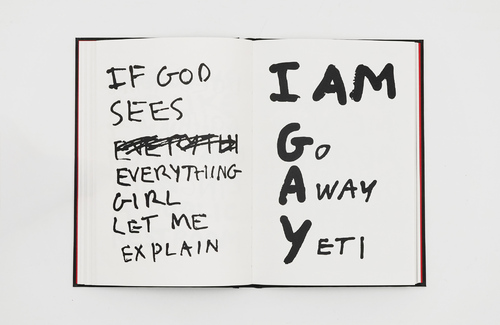 IF GOD
SEES
EVERYTHING
GIRL
LET ME
EXPLAIN
I AM
Go
AWAY
YETI